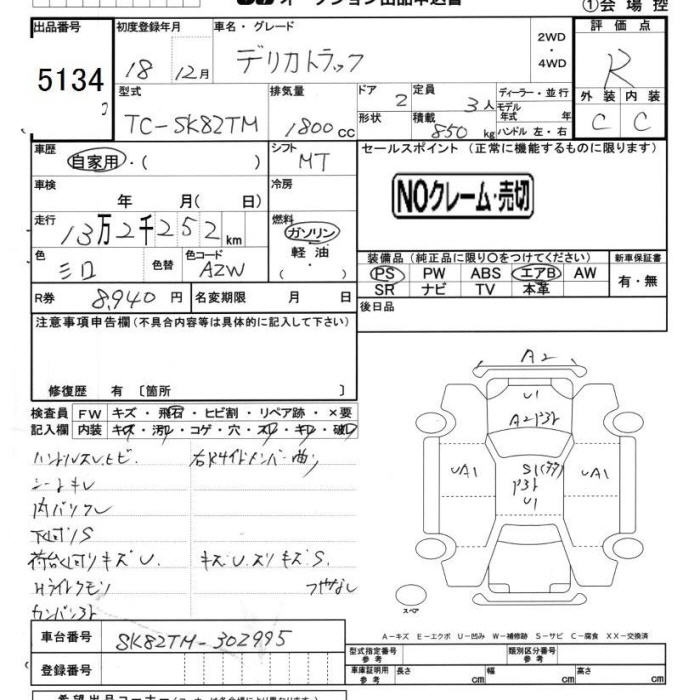 オークション出品申込書
①会場控
出品番号 初度登録年月 車名・グレード 2WD ・ 4WD 評価点
5134 18 12月 デリカトラック R
型式 排気量 ドア 2 定員 3人 ディーラー・並行 外装 内装
TC-SK82TM 1800cc 形状 積載 850kg モデル年式 年 C C
ハンドル 左・右
車歴 自家用・( ) シフト MT セールスポイント (正常に機能するものに限ります)
車検 年 月( 日) 冷房
NOクレーム・売切
走行 13万2千252km 燃料 ガソリン・軽油・( )
色 シロ 色替 色コード AZW
装備品(純正品に限り○をつけてください) 新車保証書
PS PW ABS エアB AW 有・無
SR ナビ TV 本革
R券 8,940円 名変期限 月 日 後日品
注意事項申告欄(不具合内容等は具体的に記入して下さい)
修復歴 有 〔箇所 〕
検査員 FW キズ・飛石・ヒビ割・リペア跡・×要
記入欄 内装 キズ・汚れ・コゲ・穴・スレ・キレ・破レ
ハンドルスレ.ヒビ 右R4イドメンバー曲リ
シートキレ
下回りS
荷台回りキズU. キズ.U.スリキズS.
Hライトクモリ ツヤなし
A2
U1
UA1
S1
U1
UA1
スペア
A-キズ E-エクボ U-凹み W-補修跡 S-サビ C-腐食 XX-交換済
車台番号 SK82TM-302995
型式指定番号 参考 類別区分番号 参考
登録番号 車庫証明用 参考 長さ cm 幅 cm 高さ cm
希望出品コーナー